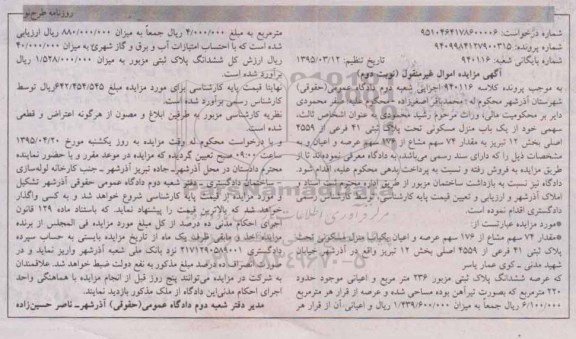 روزنامه طرح نو
شماره درخواست: ۹۵۱۰۴۶۴۱۷۸۶۰۰۰۰۶
شماره پرونده: ۹۴۰۹۹۸۴۱۲۷۹۰۰۳۱۵
شماره بایگانی شعبه: ۹۴۰۱۱۶ تاریخ تنظیم: ۱۳۹۵/۰۳/۱۲
آگهی مزایده اموال غیرمنقول (نوبت دوم)
به موجب پرونده کلاسه ۹۴۰۱۱۶ اجرایی شعبه دوم دادگاه عمومی(حقوقی)
شهرستان آذرشهر محکوم‌له: محمدباقر اصغرزاده - محکوم‌علیه: صفر محمودی
دایر بر محکومیت مالی، وراث مرحوم رشید محمودی به عنوان اشخاص ثالث،
سهمی خود از یک باب منزل مسکونی تحت پلاک ثبتی ۴۱ فرعی از ۴۵۵۹
اصلی بخش ۱۲ تبریز به مقدار ۷۴ سهم مشاع از ۱۷۶ سهم عرصه و اعیان و به
مشخصات ذیل را که دارای سند رسمی می‌باشد، به دادگاه معرفی نموده‌اند تا از
طریق مزایده به فروش رفته و نسبت به پرداخت بدهی محکوم علیه، اقدام شود.
دادگاه نیز نسبت به بازداشت ساختمان مزبور از طریق اداره محترم ثبت اسناد و
املاک آذرشهر و ارزیابی و تعیین قیمت پایه کارشناسی توسط کارشناس رسمی
دادگستری اقدام نموده است.
*مورد مزایده عبارتست از:
*مقدار ۷۴ سهم مشاع از ۱۷۶ سهم عرصه و اعیان یکباب منزل مسکونی تحت
پلاک ثبتی ۴۱ فرعی از ۴۵۵۹ اصلی بخش ۱۲ تبریز واقع در آذرشهر، خیابان
شهید مدنی ـ کوی عمار یاسر
که عرصه ششدانگ پلاک ثبتی مزبور ۲۳۶ متر مربع و اعیانی موجود حدود
۲۲۰ مترمربع که بصورت تیرآهن بوده مساحی شده و عرصه از قرار هر مترمربع
۶/۱۰۰/۰۰۰ ریال جمعاً به میزان ۱/۴۳۹/۶۰۰/۰۰۰ ریال و اعیانی آن از قرار هر
مترمربع به مبلغ ۴/۰۰۰/۰۰۰ ریال جمعاً به میزان ۸۸۰/۰۰۰/۰۰۰ ریال ارزیابی
شده است که با احتساب امتیازات آب و برق و گاز شهری به میزان ۴۰/۰۰۰/۰۰۰
ریال ارزش کل ششدانگ پلاک ثبتی مزبور به میزان ۱/۵۲۸/۰۰۰/۰۰۰ ریال
برآورد شده است.
نهایتا قیمت پایه کارشناسی برای مورد مزایده مبلغ ۶۴۲/۴۵۴/۵۴۵ ریال توسط
کارشناس رسمی برآورد شده است.
نظریه کارشناسی مزبور به طرفین ابلاغ و مصون از هرگونه اعتراض و قطعی
شده است.
و با درخواست محکوم له وقت مزایده به روز یکشنبه مورخ ۱۳۹۵/۰۴/۲۰
ساعت ۰۹:۰۰ صبح تعیین گردیده که مزایده در موعد مقرر و با حضور نماینده
محترم دادستان در محل آذرشهر ـ جاده تبریز آذرشهر ـ جنب کارخانه لوله‌سازی
ـ ساختمان دادگستری ـ دفتر شعبه دوم دادگاه عمومی حقوقی آذرشهر تشکیل
و مورد مزایده از قیمت پایه کارشناسی شروع خواهد شد و به کسی واگذار
خواهد شد که بالاترین قیمت را پیشنهاد نماید. که باستناد ماده ۱۲۹ قانون
اجرای احکام مدنی ده درصد از کل مبلغ مورد مزایده فی المجلس از برنده
مزایده اخذ و مابقی ظرف یک ماه از تاریخ مزایده بایستی به حساب سپرده
دادگستری ۲۱۷۱۲۹۰۵۸۹۰۰۱ نزد بانک ملی شعبه آذرشهر واریز نماید و در
صورت انصراف ده درصد مبلغ مذکور به نفع دولت ضبط خواهد شد. علاقمندان
به شرکت در مزایده می‌توانند پنج روز قبل از انجام مزایده با هماهنگی واحد
اجرای احکام مدنی این دادگاه از ملک مذکور بازدید نمایند.
مدیر دفتر شعبه دوم دادگاه عمومی(حقوقی) آذرشهر ـ ناصر حسین‌زاده